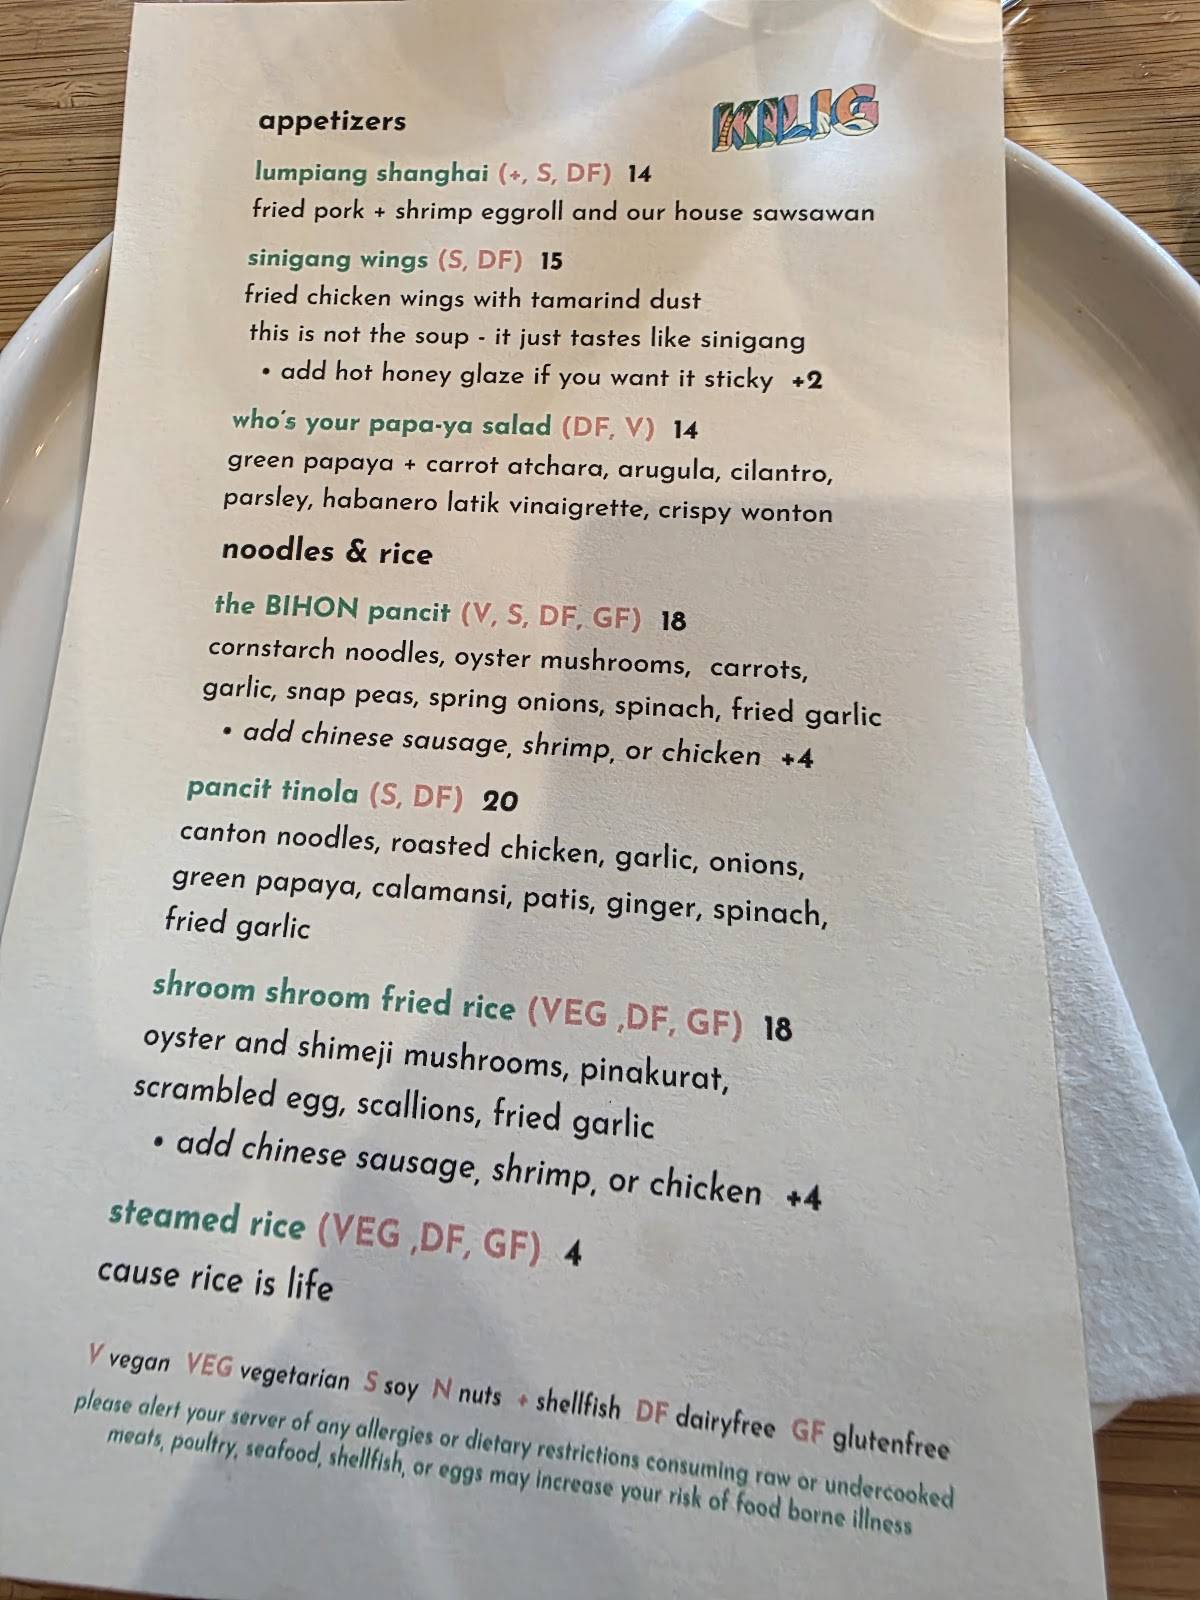 KILIG
appetizers
lumpiang shanghai (+, S, DF) 14
fried pork + shrimp eggroll and our house sawsawan
sinigang wings (S, DF) 15
fried chicken wings with tamarind dust
this is not the soup - it just tastes like sinigang
• add hot honey glaze if you want it sticky +2
who's your papa-ya salad (DF, V) 14
green papaya + carrot atchara, arugula, cilantro,
parsley, habanero latik vinaigrette, crispy wonton
noodles & rice
the BIHON pancit (V, S, DF, GF) 18
cornstarch noodles, oyster mushrooms, carrots,
garlic, snap peas, spring onions, spinach, fried garlic
• add chinese sausage, shrimp, or chicken +4
pancit tinola (S, DF) 20
canton noodles, roasted chicken, garlic, onions,
green papaya, calamansi, patis, ginger, spinach,
fried garlic
shroom shroom fried rice (VEG ,DF, GF) 18
oyster and shimeji mushrooms, pinakurat,
scrambled egg, scallions, fried garlic
• add chinese sausage, shrimp, or chicken +4
steamed rice (VEG ,DF, GF) 4
cause rice is life
V vegan VEG vegetarian S soy N nuts + shellfish DF dairyfree GF glutenfree
please alert your server of any allergies or dietary restrictions consuming raw or undercooked
meats, poultry, seafood, shellfish, or eggs may increase your risk of food borne illness